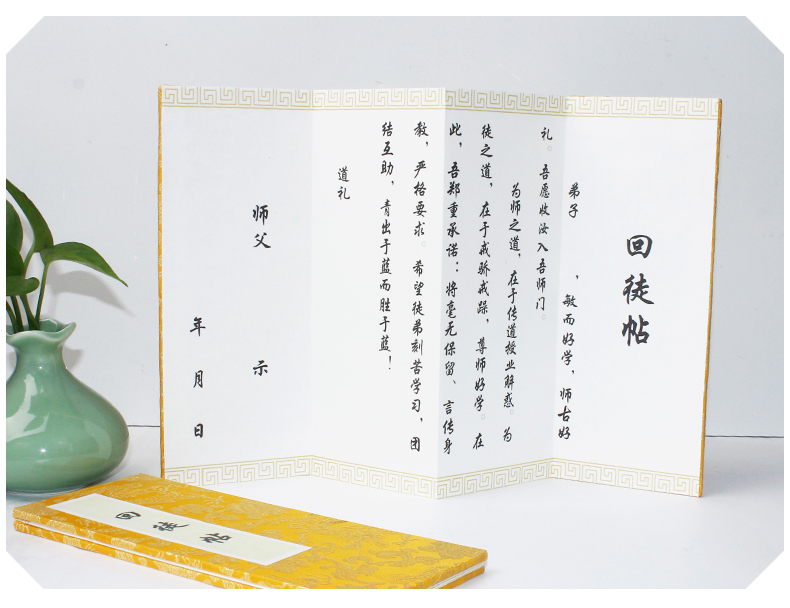 回徒帖
弟子 ，敏而好学，师古好
礼。吾愿收汝入吾师门。
为师之道，在于传道授业解惑。为
徒之道，在于戒骄戒躁，尊师好学。在
此，吾郑重承诺：将毫无保留、言传身
教，严格要求。希望徒弟刻苦学习，团
结互助，青出于蓝而胜于蓝！
道礼
师父 示
年 月 日
回徒帖